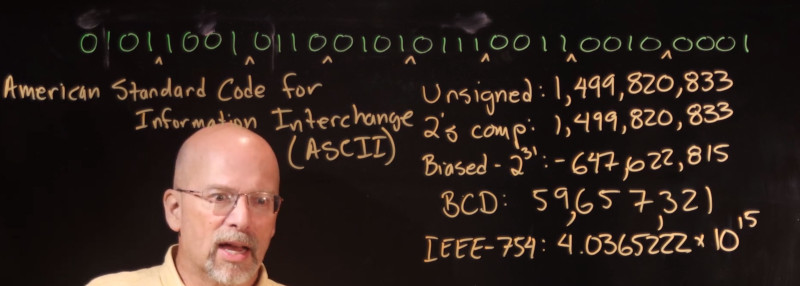 01011001011001010111001100100001
American Standard Code for
Information Interchange
(ASCII)
Unsigned: 1,499,820,833
2's comp: 1,499,820,833
Biased-2³¹: -647,622,815
BCD: 59,657,321
IEEE-754: 4.0365222 × 10¹⁵